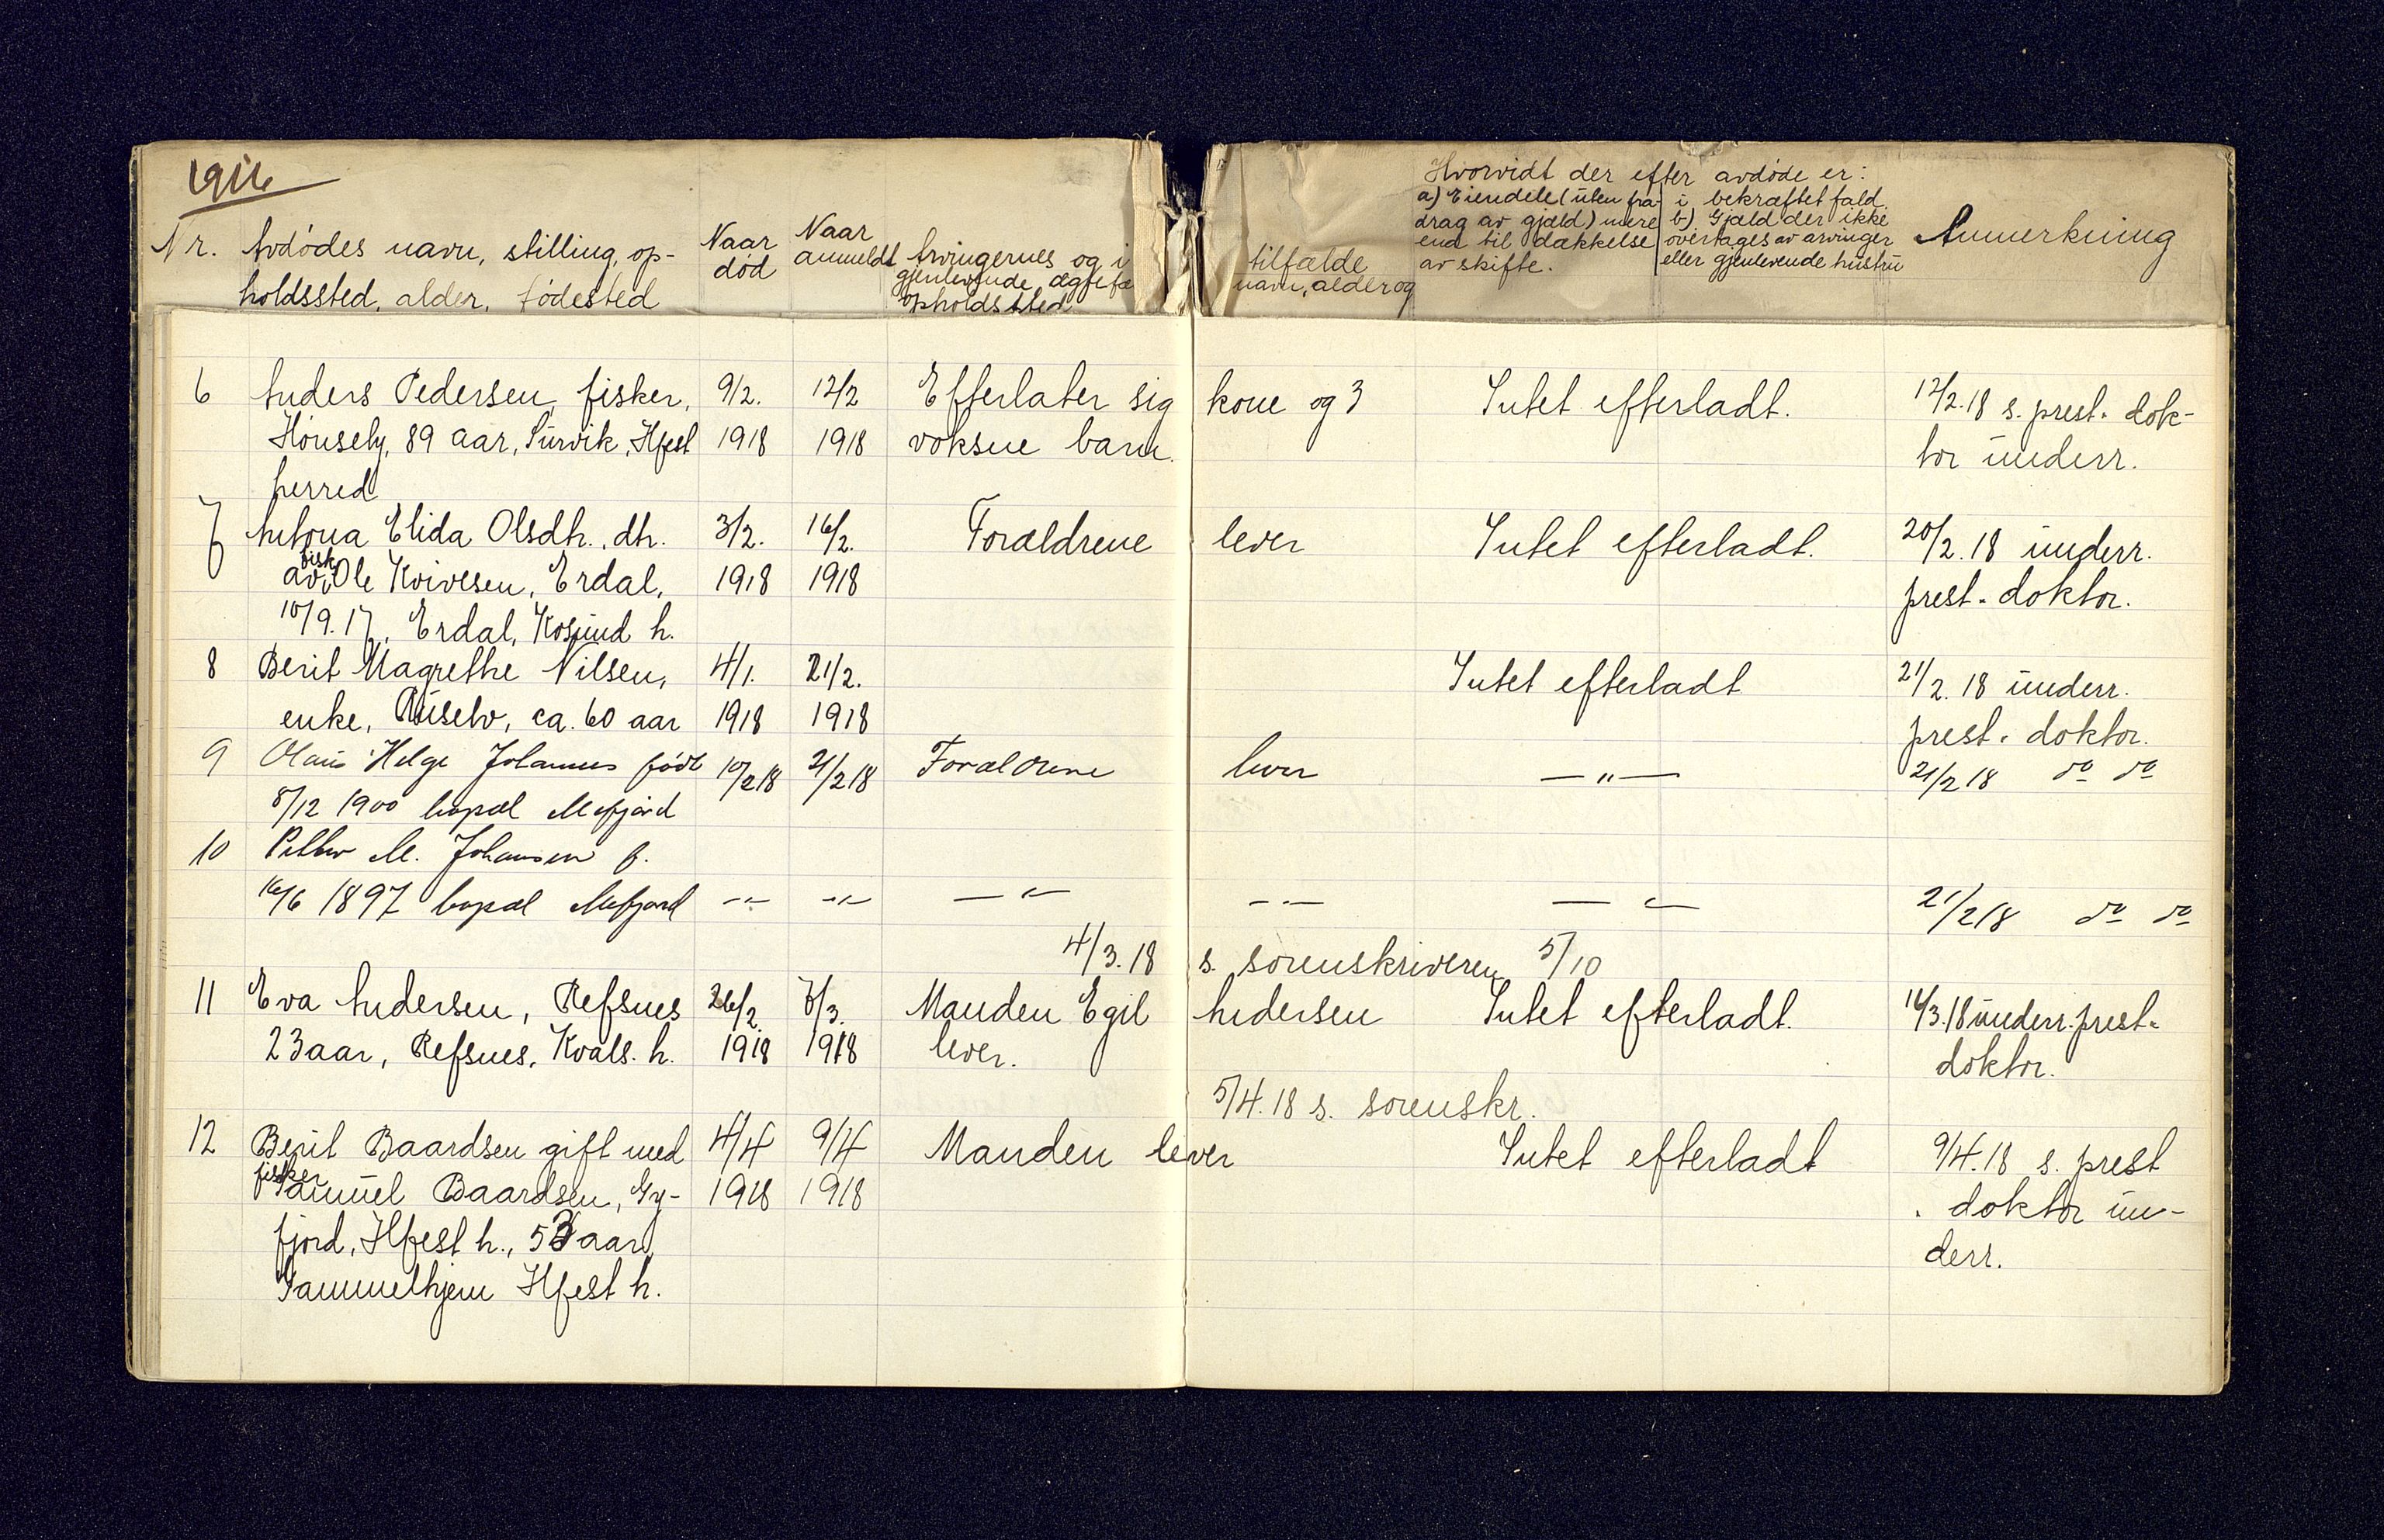 1916
Hvorvidt der efter avdøde er:
a) Eiendele (uten fra- i bekræftet fald.
drag av gjæld) mere b) Gjæld der ikke
end til dækkelse overtages av arvinger
av skifte. eller gjenlevende hustru
Nr. Avdødes navn, stilling, op- Naar Naar Arvingernes og i tilfælde Anmerkning
holdssted, alder, fødested død anmeldt gjenlevende ægtefæ navn, alder og
opholdssted
6 Anders Pedersen, fisker, 9/2. 12/2 Efterlater sig kone og 3 Intet efterladt. 12/2.18 s. prest. dok-
89 aar, Hfest 1918 1918 voksne barn. tor underr.
herred
7 Antona Elida Olsdtr., dtr. 3/2. 16/2. Forældrene lever Intet efterladt. 20/2.18 underr.
av fisk. Ole Kvivesen, Erdal, 1918 1918 prest. doktor.
10/9.17, Erdal, h.
8 Berit Magrethe Nilsen, 4/1. 21/2. Intet efterladt 21/2.18 underr.
enke, Ruselv, ca. 60 aar 1918 1918 prest. doktor.
9 Olaus Helge Johannes født 10/2 18 21/2 18 Forældrene lever — " — 21/2 18 do do
8/12 1900 bopæl Mefjord
10 Petter M. Johansen f.
16/6 1897 bopæl Mefjord — " — — " — — " — — " — — " — 21/2 18 do do
4/3.18 s. sorenskriveren 5/10
11 Eva Andersen, Refsnes 26/2. 7/3. Manden Egil Andersen Intet efterladt. 16/3.18 underr. prest.
23 aar, Refsnes, Kvals. h. 1918 1918 lever. doktor.
5/4.18 s. sorenskr.
12 Berit Baardsen gift med 4/4 9/4 Manden lever Intet efterladt 9/4.18 s. prest
fisker Samuel Baardsen, Gy- 1918 1918 . doktor un-
fjord, Hfest h., 53 aar, derr.
Hfest h.